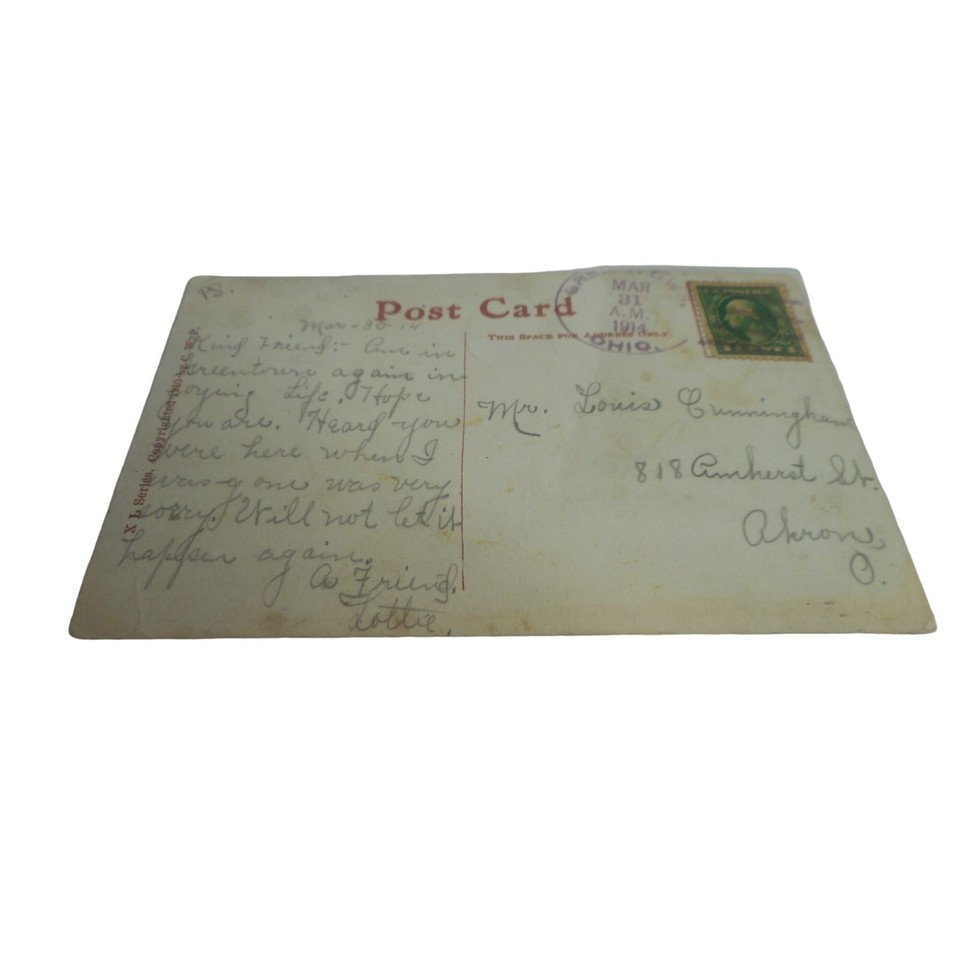 PS.
Post Card
THIS SPACE FOR ADDRESS ONLY
MAR
31
A.M.
1914
OHIO.
U.S. POSTAGE
X L Series. Copyrighted 1910 by
Mar-30-14
Kind Friend:- Am in
Greentown again in
oying Life. Hope
you are. Heard you
were here when I
was gone was very
sorry. Will not let it
happen again.
A Friend.
Lottie.
Mr. Louis Cunningham
818 Amherst St.
Akron,
O.